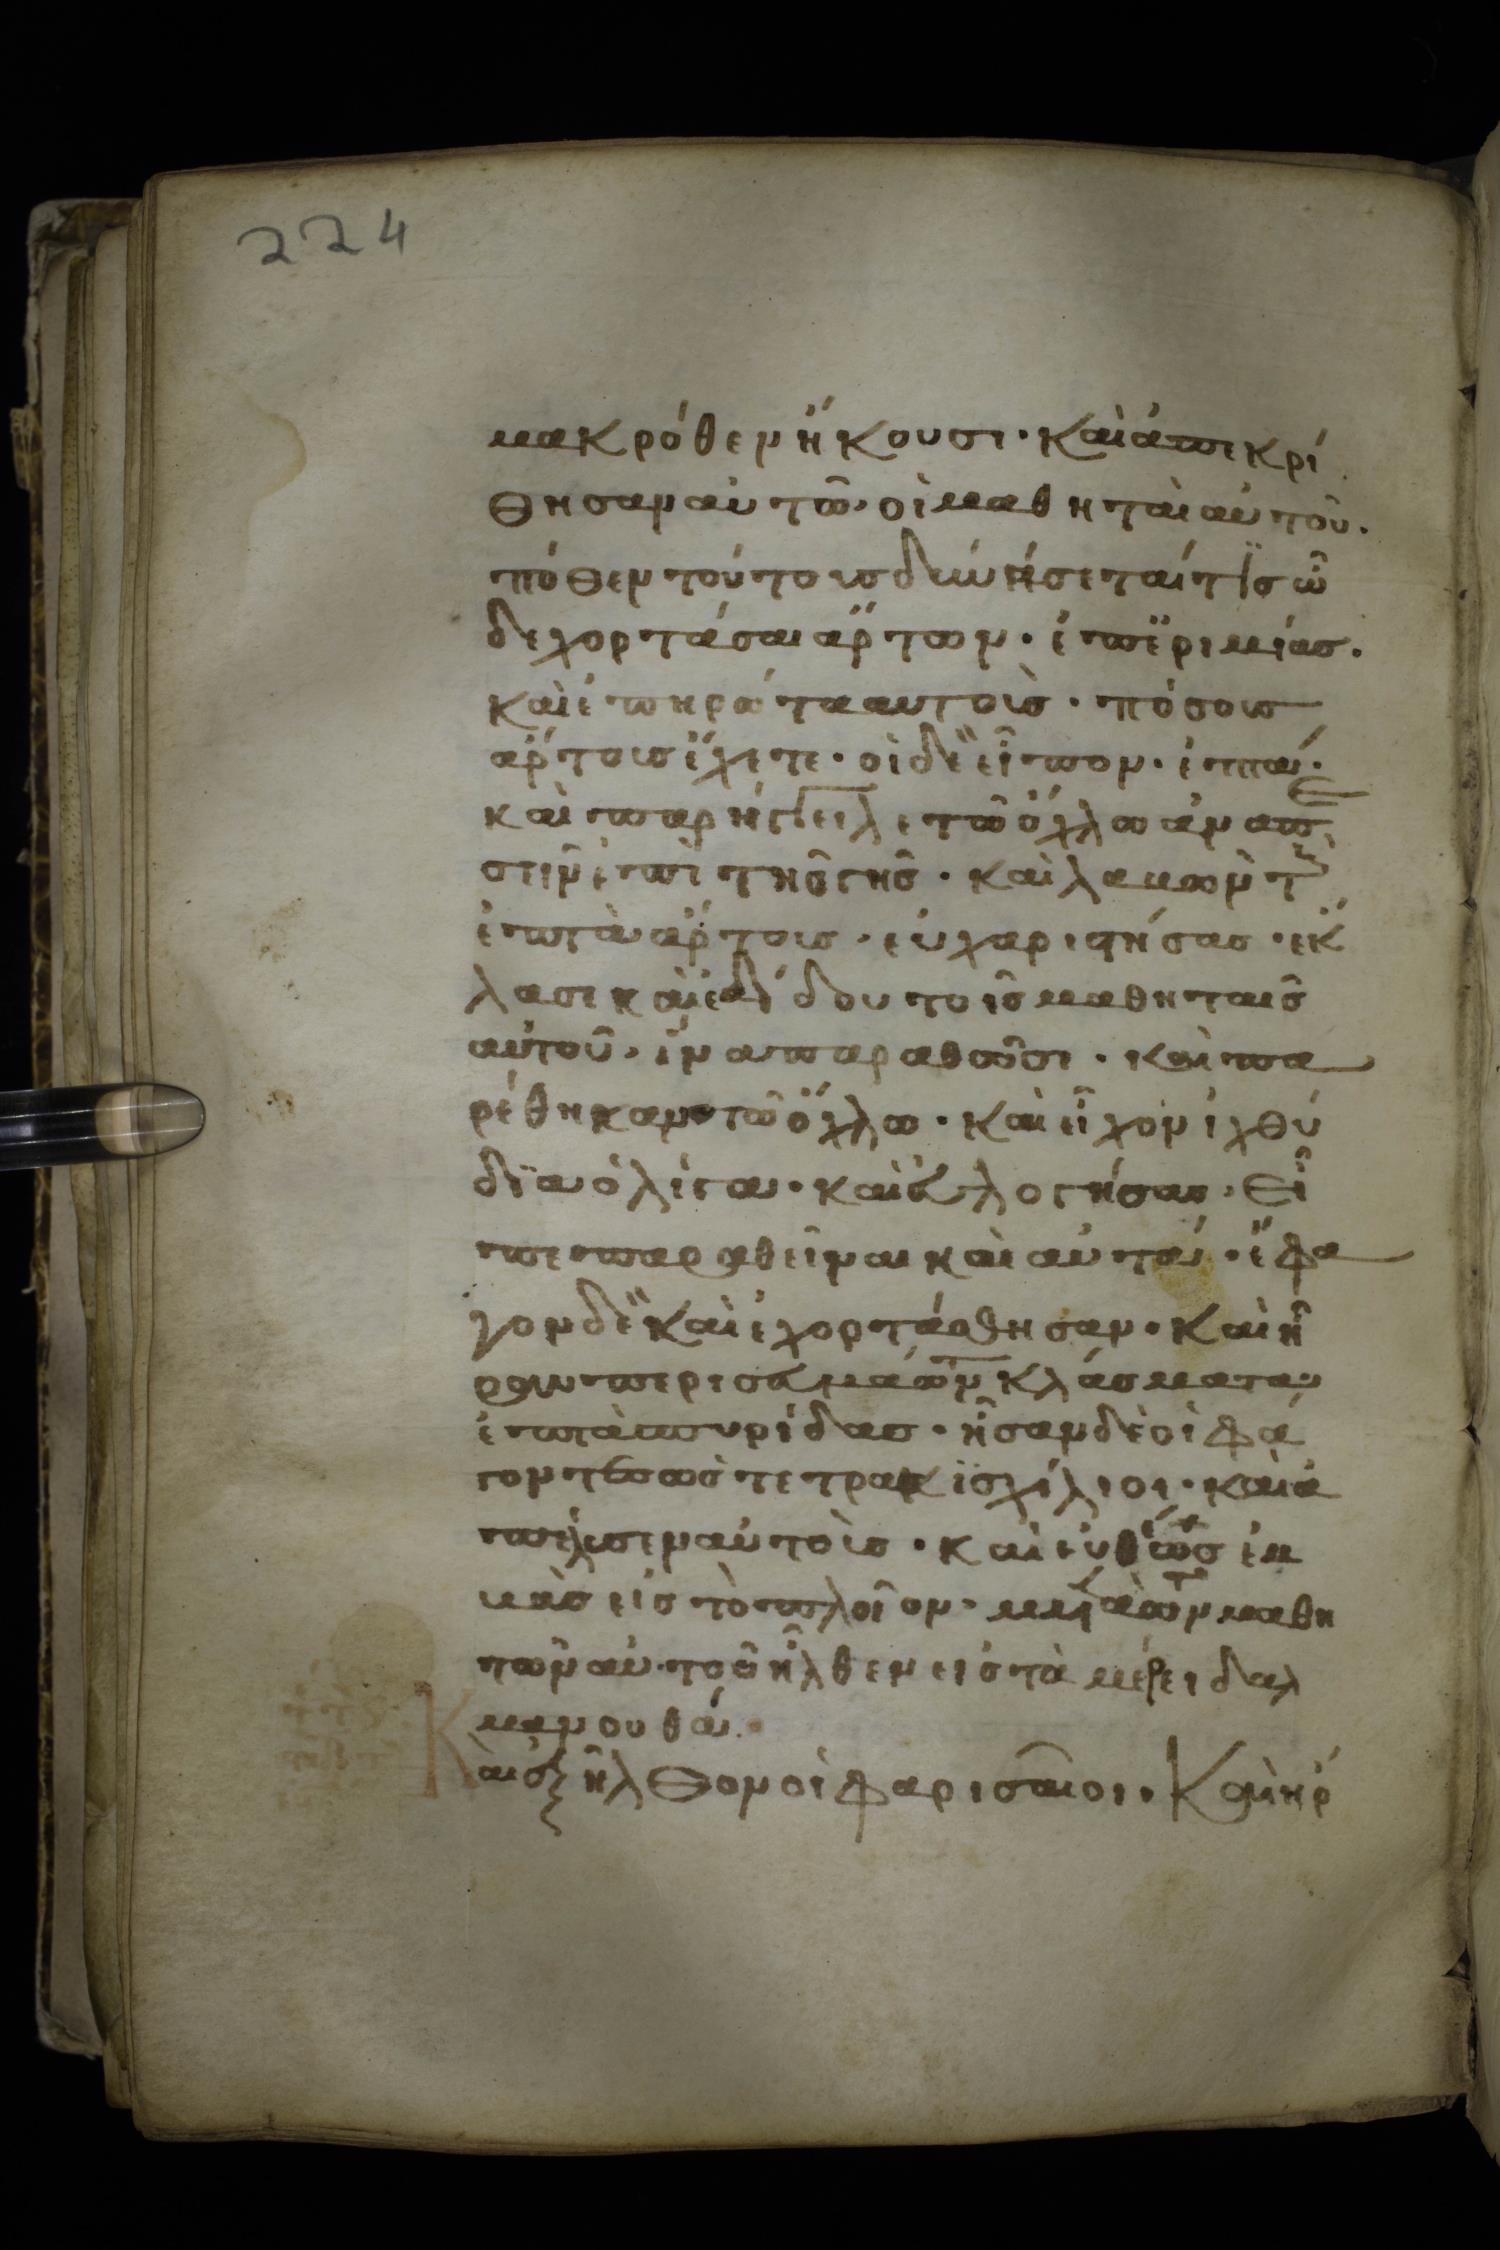 224
μακρόθεν ἥκουσι· καὶ ἀπεκρί
θησαν αὐτῶ· οἱ μαθηταὶ αὐτοῦ·
πόθεν τούτους δυνήσεταί τϊς ὧ
δε χορτάσαι ἄρτων· ἐπ ἐρημίας·
καὶ ἐπηρώτα αυτοὺς· πόσους
ἄρτους ἔχετε· οἱ δὲ εἶπον· ἑπτά·
καὶ παρήγγειλε τῶ ὄχλω ἀναπε
σεῖν ἐπὶ τῆς γῆς· καὶ λαβὼν τοὺς
ἑπτὰ ἄρτους· εὐχαριστήσας· ἔκ
λασε καὶ ἐδίδου τοῖς μαθηταῖς
αὐτοῦ· ἵνα παραθῶσι· καὶ πα
ρέθηκαν τῶ ὄχλω· καὶ εἶχον ἰχθύ
δϊα ὀλίγα· καὶ εὐλογήσας· εἶ
πε παραθεῖναι καὶ αὐτά· ἔφα
γον δὲ καὶ ἐχορτάσθησαν· καὶ ἦ
ραν περισεύματα τῶν κλάσματα
ἑπτὰ σπυρίδας· ἦσαν δὲ οἱ φά
γοντες ὡς τετρακϊσχίλιοι· καὶ ἀ
πέλυσεν αὐτοὺς· καὶ εὐθέως ἐμ
βὰς εἰς τὸ πλοῖον· μετὰ τῶν μαθη
τῶν αὐτοῦ ἦλθεν εἰς τὰ μέρει δαλ
μανουθά·
Καὶ ἐξῆλθον οἱ φαρισαῖοι· Καὶ ἤρ